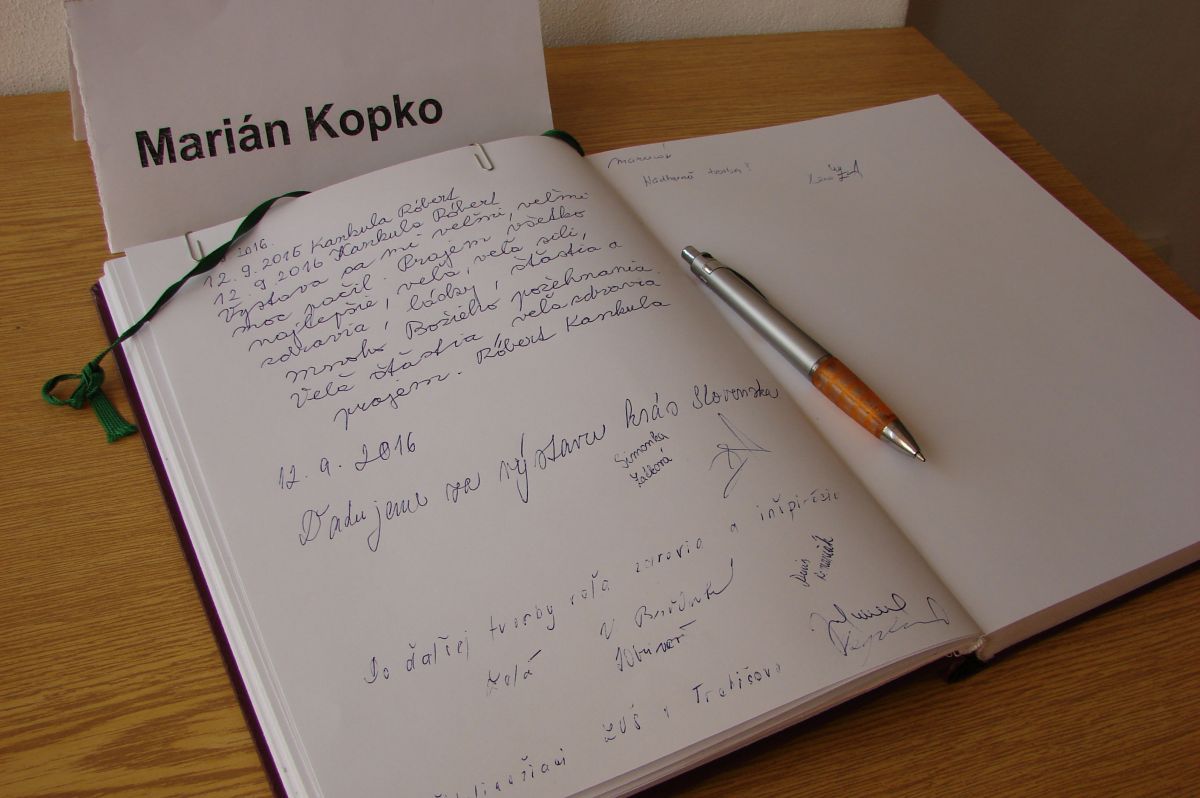 Marián Kopko
2016.
12.9.2016 Kankula Róbert
12.9.2016 Kankula Róbert
Výstava sa mi veľmi, veľmi
moc páčil. Prajem všetko
najlepšie, veľa, veľa sili,
zdravia, lásky, štástia a
mnoho Božieho požehnania.
Veľa štástia, veľa zdravia
prajem. Róbert Kankula
12.9.2016
Ďadujeme za výstavu krás Slovenska
Simonka
Do ďaľšej tvorby veľa zdravia a inšpirácie
želá
ZUŠ v Trebišove
Nádherná tvorba!